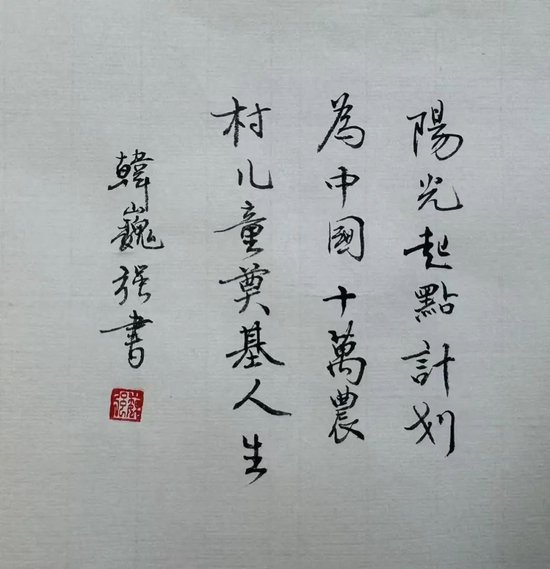 陽光起點計划
為中國十萬農
村儿童奠基人生
韓巍强書